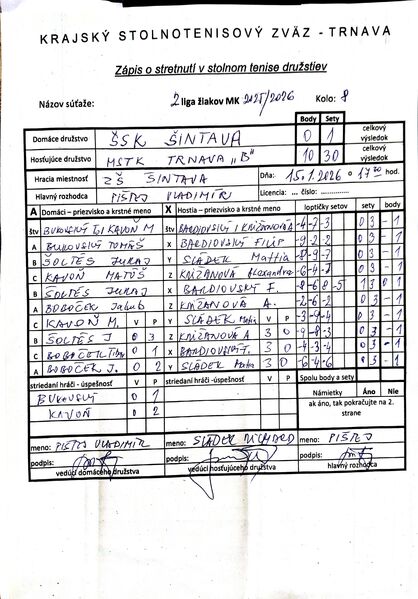 KRAJSKÝ STOLNOTENISOVÝ ZVÄZ - TRNAVA
Zápis o stretnutí v stolnom tenise družstiev
Názov súťaže: 2 liga žiakov MK 2025/2026 Kolo: 8
Body Sety
Domáce družstvo ŠSK ŠINTAVA 0 1 celkový výsledok
Hosťujúce družstvo MSTK TRNAVA "B" 10 30 celkový výsledok
Hracia miestnosť ZŠ ŠINTAVA Dňa: 15.1.2026 o 17 30 hod.
Hlavný rozhodca PIŠTEJ VLADIMÍR Licencia: ... číslo:
A Domáci – priezvisko a krstné meno X Hostia – priezvisko a krstné meno loptičky setov sety body
štv BUKOVSKÝ T, KAVOŇ M štv BARDIOVSKÝ I KNÍŽANOVÁ A -4 -7 -3 0 3 - 1
A BUKOVSKÝ TOMÁŠ X BARDIOVSKÝ FILIP -9 -2 -2 0 3 - 1
B ŠOLTÉS JURAJ Y SLÁDEK Mattia 0 3 - 1
C KAVOŇ MATÚŠ Z KNÍŽANOVÁ Alexandra -6 -4 -7 0 3 - 1
B ŠOLTÉS JURAJ X BARDIOVSKÝ F. -8 -6 8 -5 1 3 0 1
A BOBOČEK Jakub Z KNÍŽANOVÁ A. -2 -6 -2 0 3 - 1
C KAVOŇ M. V P Y SLÁDEK V P 0 3 - 1
B ŠOLTÉS J 0 3 Z KNÍŽANOVÁ A 3 0 -9 -8 -3 0 3 - 1
C 0 1 X BARDIOVSKÝ F. 3 0 0 3 - 1
A BOBOČEK J. 0 2 Y SLÁDEK 3 0 -6 -4 -6 0 3 - 1
striedaní hráči - úspešnosť V P striedaní hráči - úspešnosť V P Spolu body a sety
BUKOVSKÝ 0 1 Námietky Áno Nie
KAVOŇ 0 2 ak áno, tak pokračujte na 2. strane
meno: PIŠTEJ VLADIMÍR meno: SLÁDEK RICHARD meno: PIŠTEJ
podpis: podpis: podpis:
vedúci domáceho družstva vedúci hosťujúceho družstva hlavný rozhodca